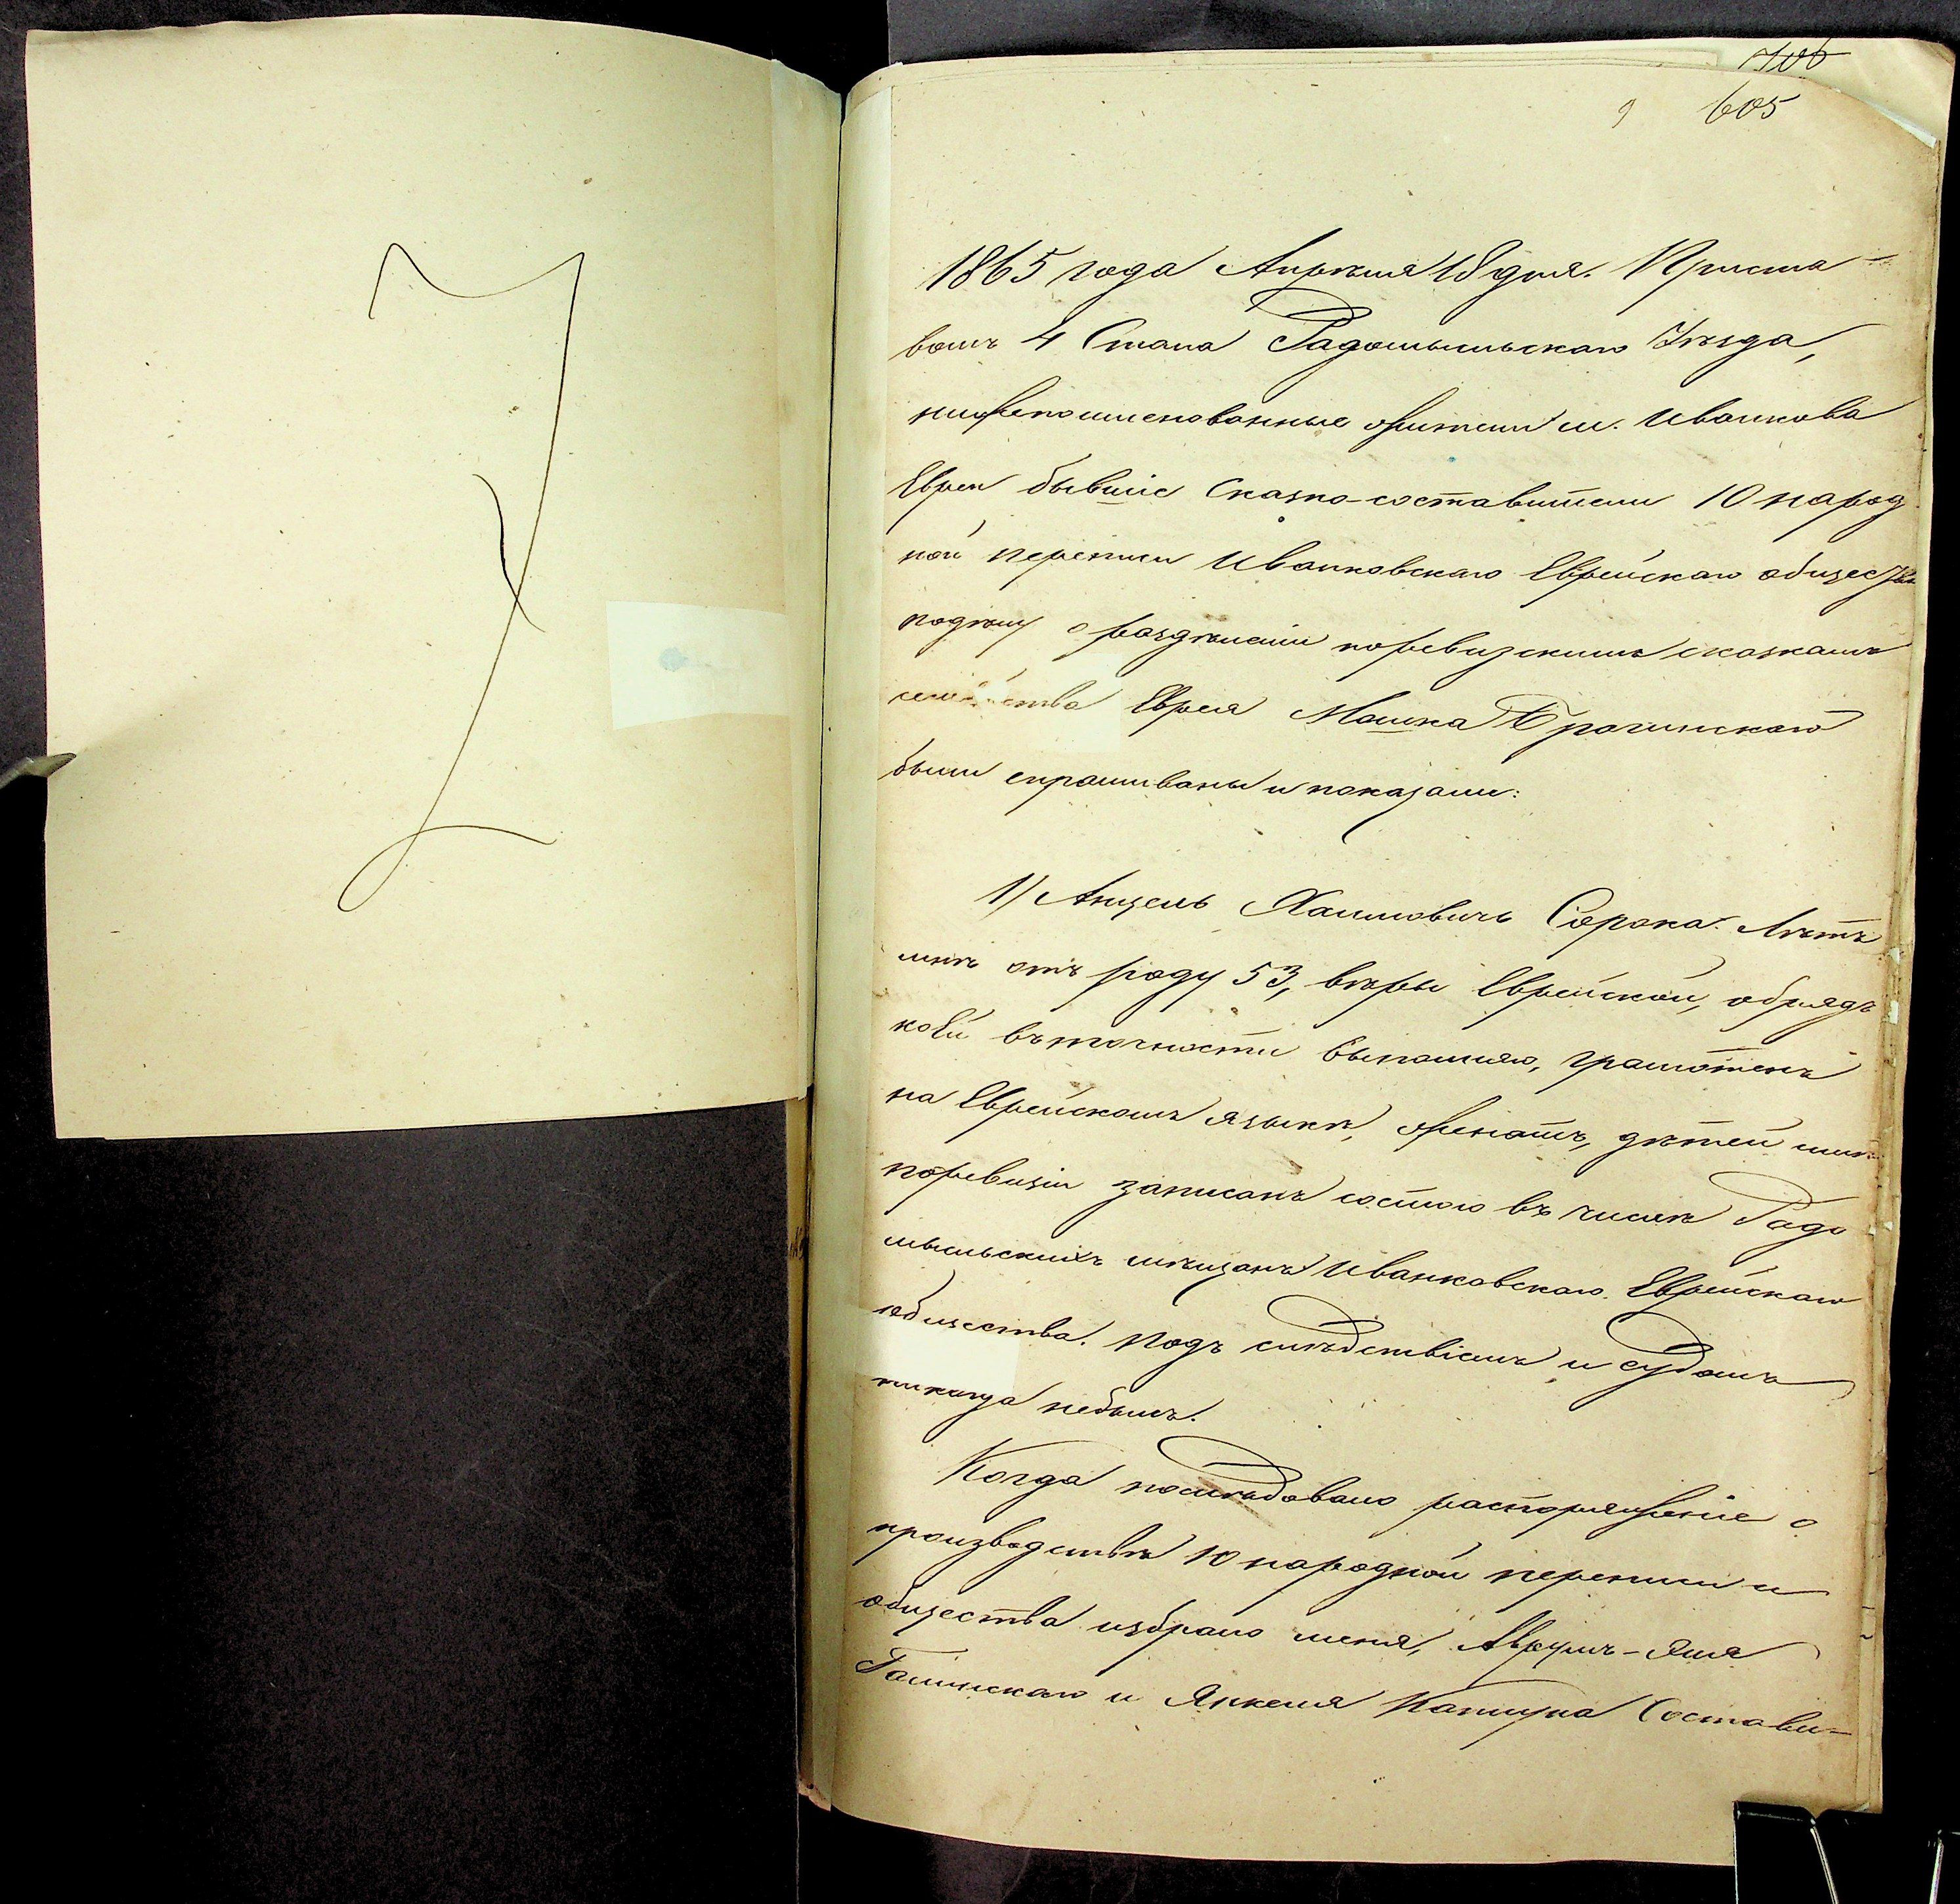 706
9 605
1865 года Апрѣля 18 дня. Приста-
вомъ 4 Стана Радомысльскаго Уѣзда,
нижепоименованные жители м. Иванкова
Евреи бывшіе Сказко-составители 10 народ
ной переписи Иванковскаго Еврейскаго общества
подѣлу о раздѣленіи поревизскимъ сказкамъ
семейства Еврея Мошка Брагинскаго
были спрашиваны и показали:
1/ Анцель Хаимовичь Сорока. Лѣтъ
мнѣ отъ роду 53, вѣры Еврейской, обрядъ
коей въ точности выполняю, грамотенъ
на Еврейскомъ языкѣ, женатъ, дѣтей имѣю
поревизіи записанъ состою въ числѣ Радо
мысльскихъ мѣщанъ Иванковскаго Еврейскаго
общества. подъ слѣдствіемъ и судомъ
никогда небылъ.
Когда послѣдовало распоряженіе о
производствѣ 10 народной переписи и
общества избрано меня, -Яля
Галинскаго и Янкеля Капцуна Состави-